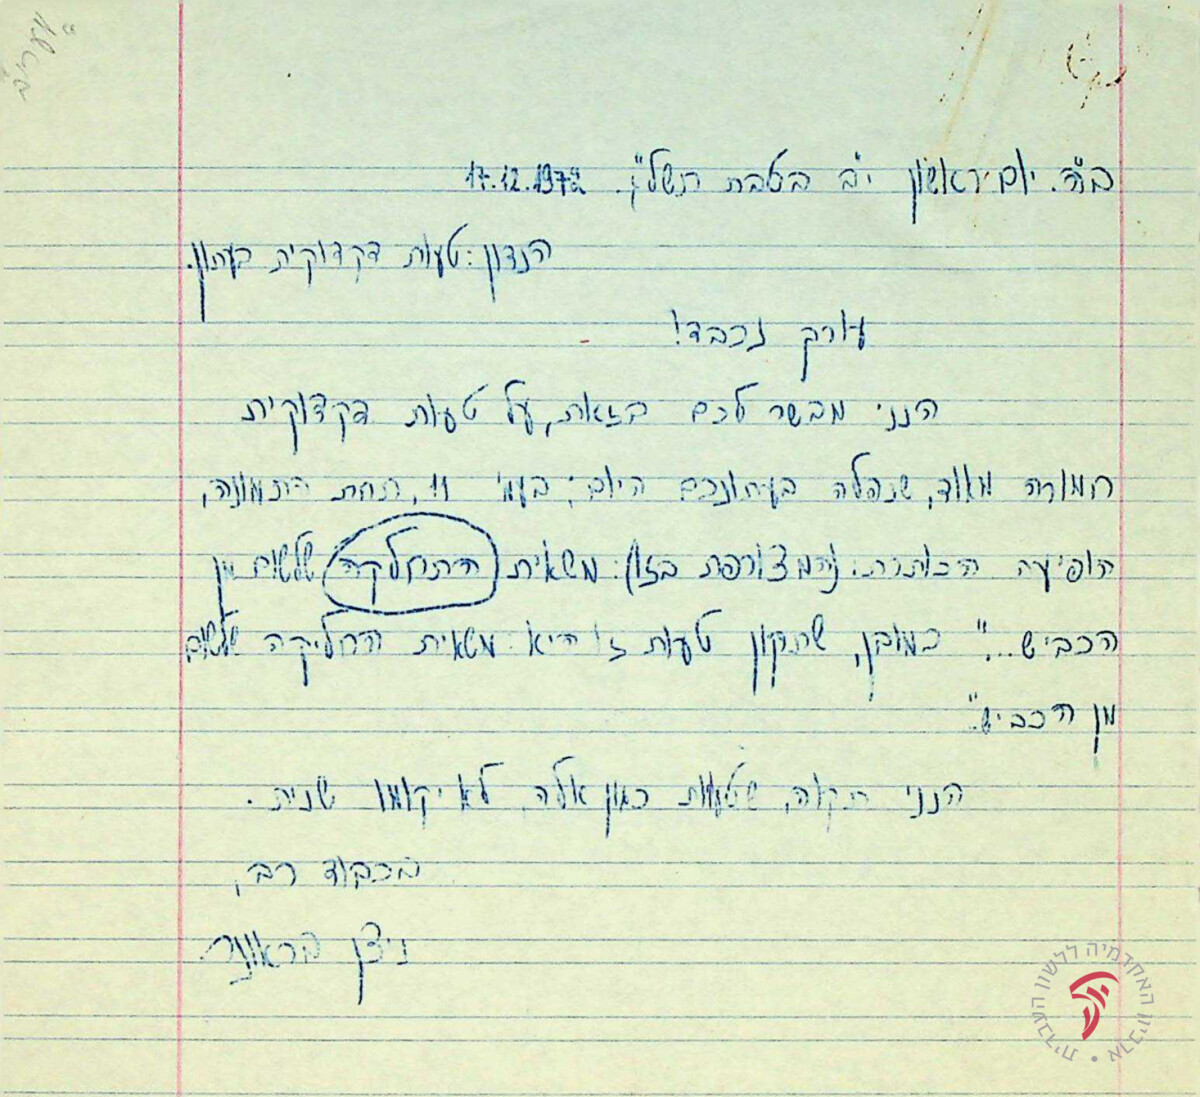 "מעריב"
ב"ה. יום ראשון י"ב בטבת תשל"ג. 17.12.1972
הנדון: טעות דקדוקית בעתון.
עורך נכבד!
הנני מבשר לכם בזאת, על טעות דקדוקית
חמורה מאוד, שנפלה בעתונכם היום; בעמ' 11, תחת התמונה,
הופיעה הכותרת: (המצורפת בזו): משאית התחלקה שלשום מן
הכביש..." כמובן, שתקון טעות זו היא: משאית החליקה שלשום
מן הכביש."
הנני תקוה, שטעויות כגון אלה, לא יקומו שנית.
בכבוד רב,
ניצן
האקדמיה ללשון העברית • ארכיון